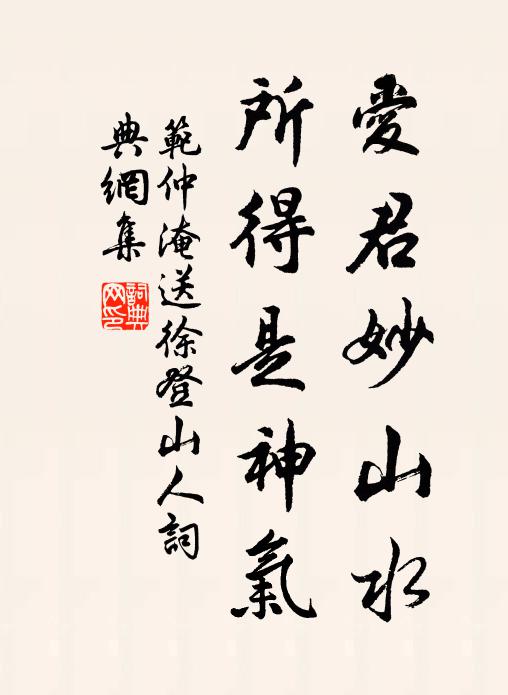 愛君妙山水
所得是神氣
範仲淹送徐登山人詞
典網集
詞典网印